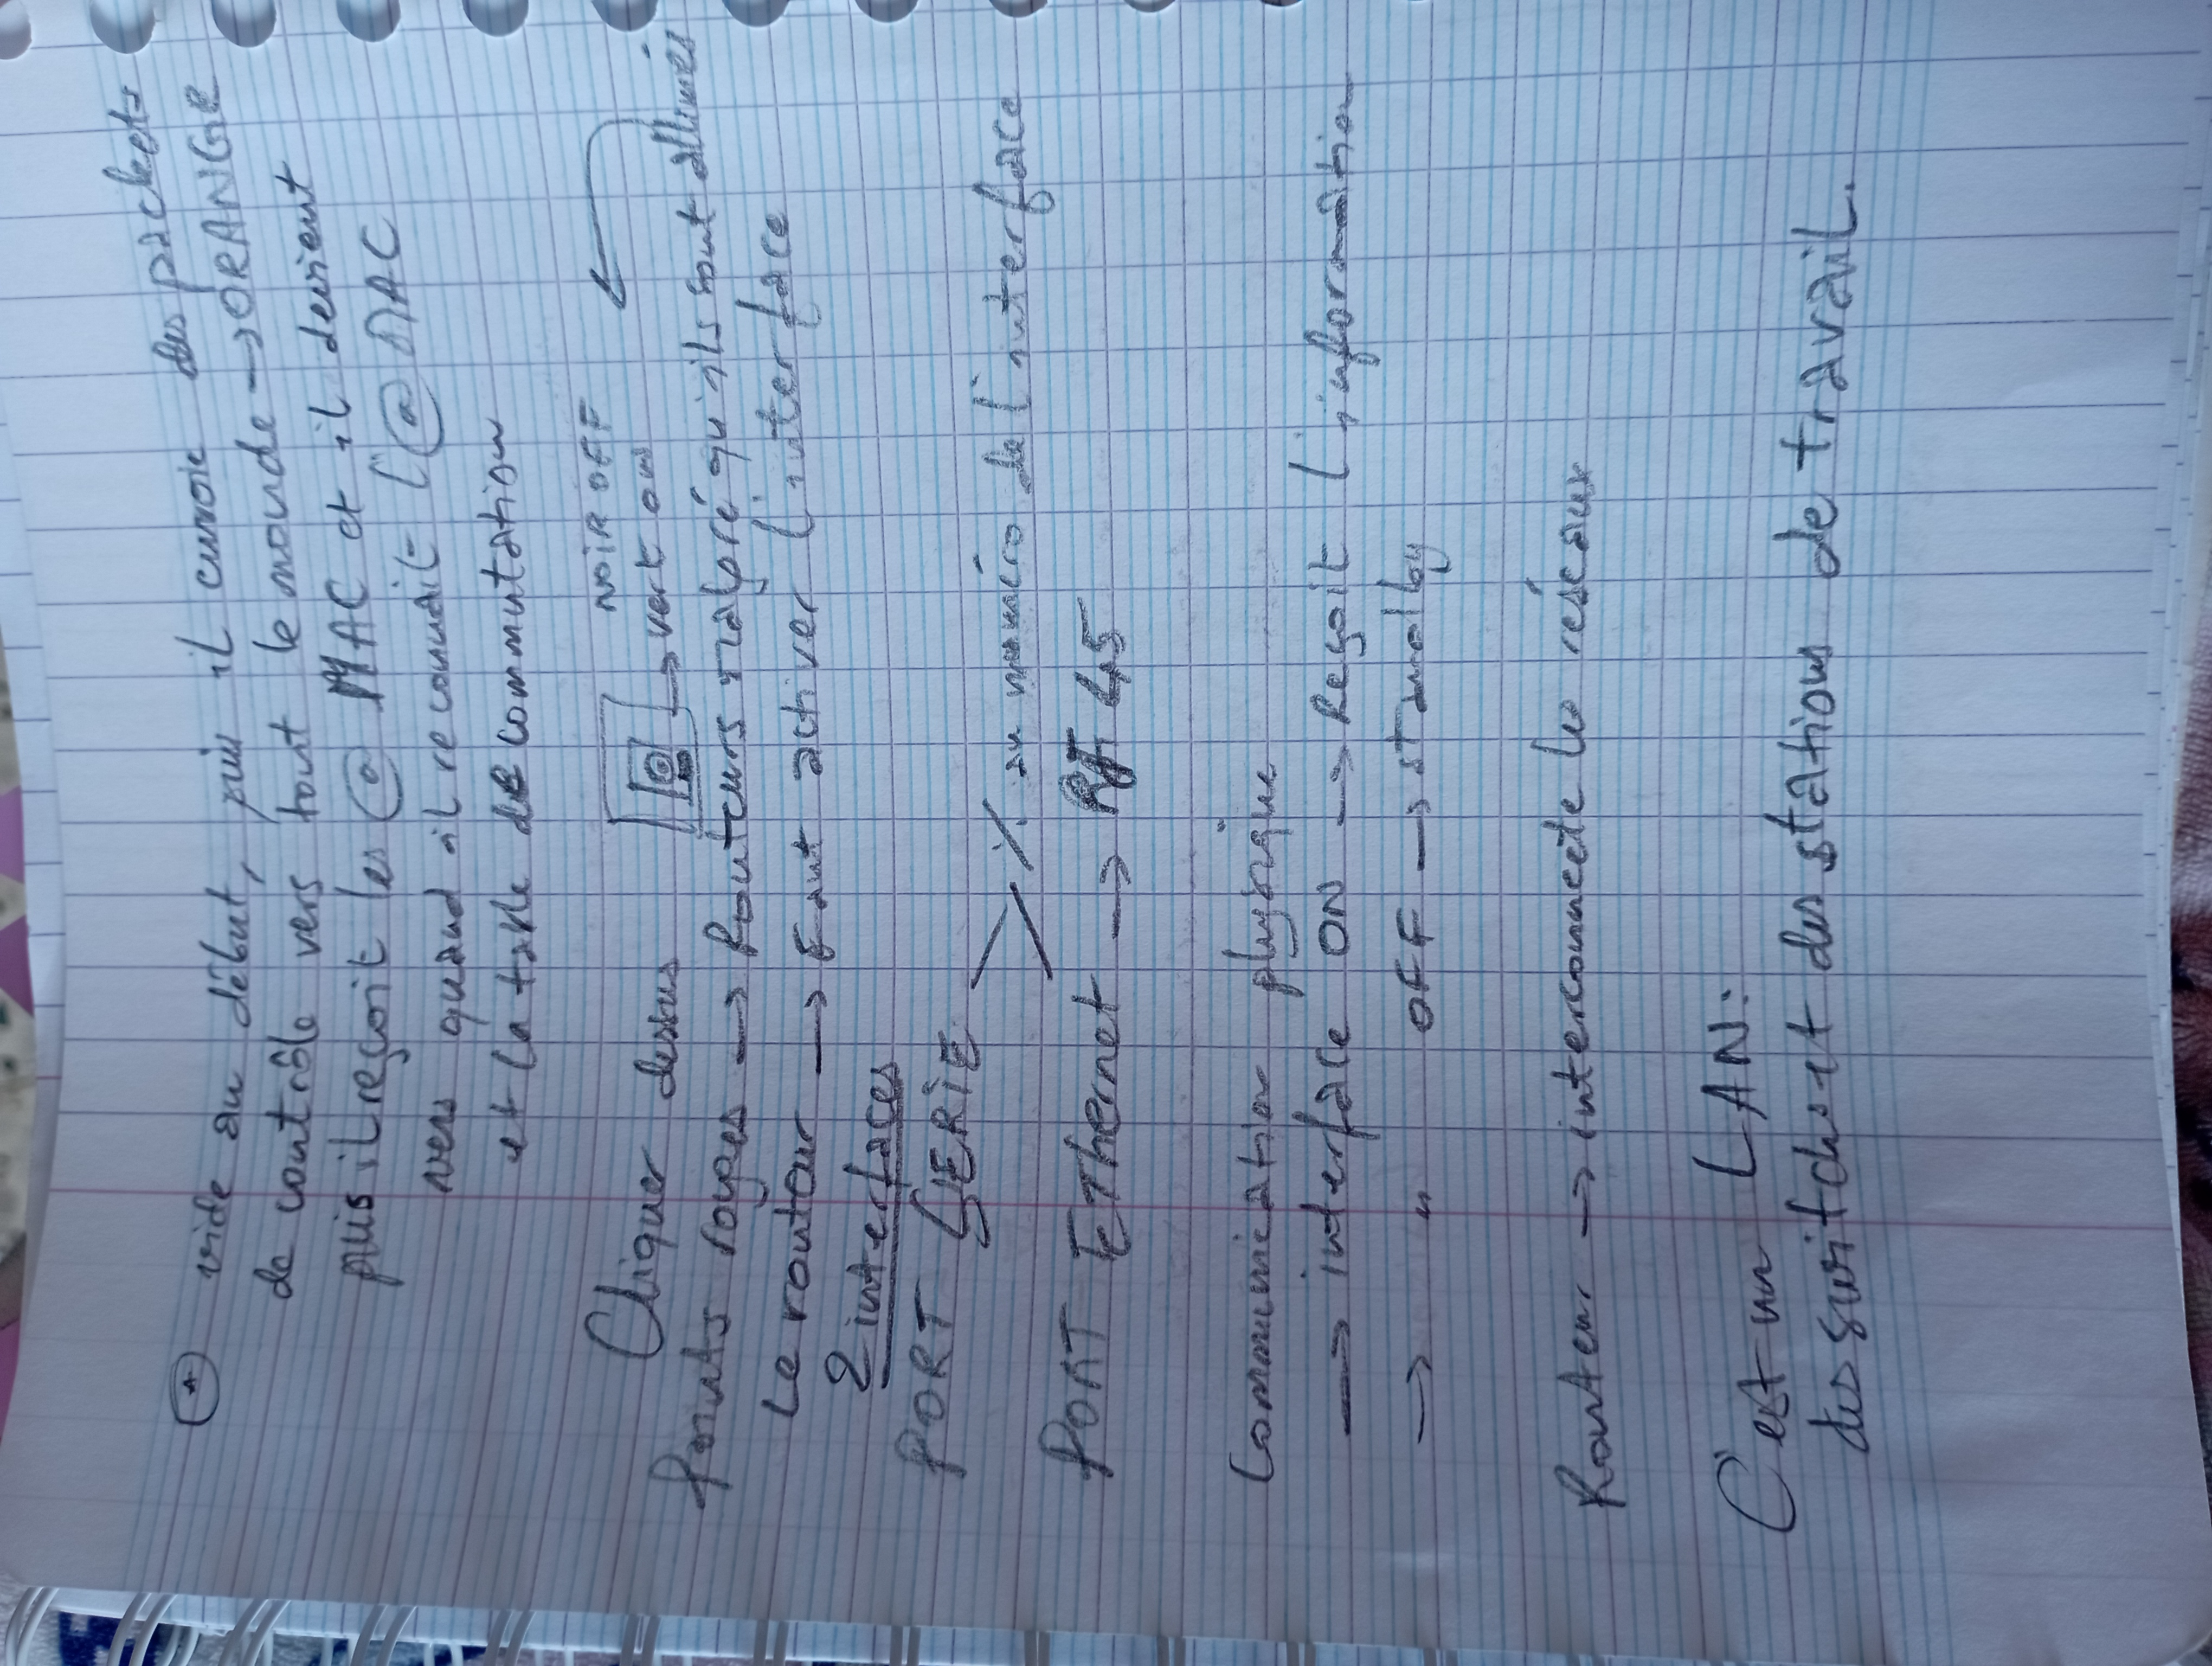 * vide au début, puis il envoie des packets
de contrôle vers tout le monde → ORANGE
puis il reçoit les @ MAC et il devient
vers quand il reconnait l'@ MAC
et la table de commutation
noir OFF
Cliquer dessus → vert on
Points rouges → Routeurs malgré qu'ils sont allumés
Le routeur → Faut activer l'interface
2 interfaces
PORT SERIE
% au numéro de l'interface
PORT Ethernet → RJ 45
Communication physique
→ interface ON → Reçoit l'information
→ " OFF → standby
Routeur → interconnecte les réseaux
C'est un LAN:
des switchs et des stations de travail.